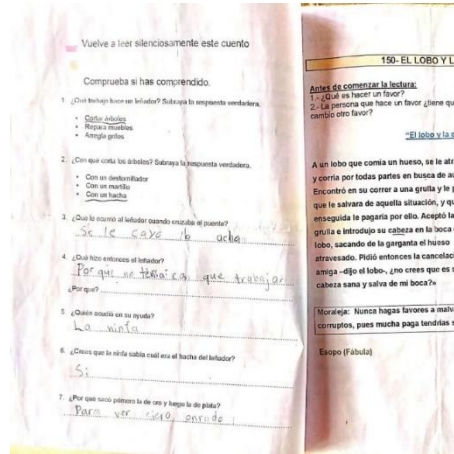 Vuelve a leer silenciosamente este cuento
Comprueba si has comprendido.
1. ¿Qué trabajo hace un leñador? Subraya la respuesta verdadera.
Corta árboles
Repara muebles
Arregla grifos
2. ¿Con qué corta los árboles? Subraya la respuesta verdadera.
Con un destornillador
Con un martillo
Con un hacha
3. ¿Qué le ocurrió al leñador cuando cruzaba el puente?
Se le cayo acha
4. ¿Qué hizo entonces el leñador?
Por que no que trabajar
¿Por qué?
5. ¿Quién acudió en su ayuda?
La ninfa
6. ¿Crees que la ninfa sabía cuál era el hacha del leñador?
Si
7. ¿Por qué sacó primero la de oro y luego la de plata?
Para ver onrado
150- EL LOBO Y L
Antes de comenzar la lectura:
1.- ¿Qué es hacer un favor?
2.- La persona que hace un favor ¿tiene qu
cambio otro favor?
"El lobo y la
A un lobo que comía un hueso, se le atr
y corría por todas partes en busca de au
Encontró en su correr a una grulla y le p
que le salvara de aquella situación, y qu
enseguida le pagaría por ello. Aceptó la
grulla e introdujo su cabeza en la boca
lobo, sacando de la garganta el hueso
atravesado. Pidió entonces la cancelac
amiga –dijo el lobo-, ¿no crees que es s
cabeza sana y salva de mi boca?»
Moraleja: Nunca hagas favores a malv
corruptos, pues mucha paga tendrías s
Esopo (Fábula)